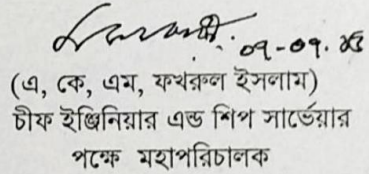 ০৭-০৭.
(এ, কে, এম, ফখরুল ইসলাম)
চীফ ইঞ্জিনিয়ার এন্ড শিপ সার্ভেয়ার
পক্ষে মহাপরিচালক